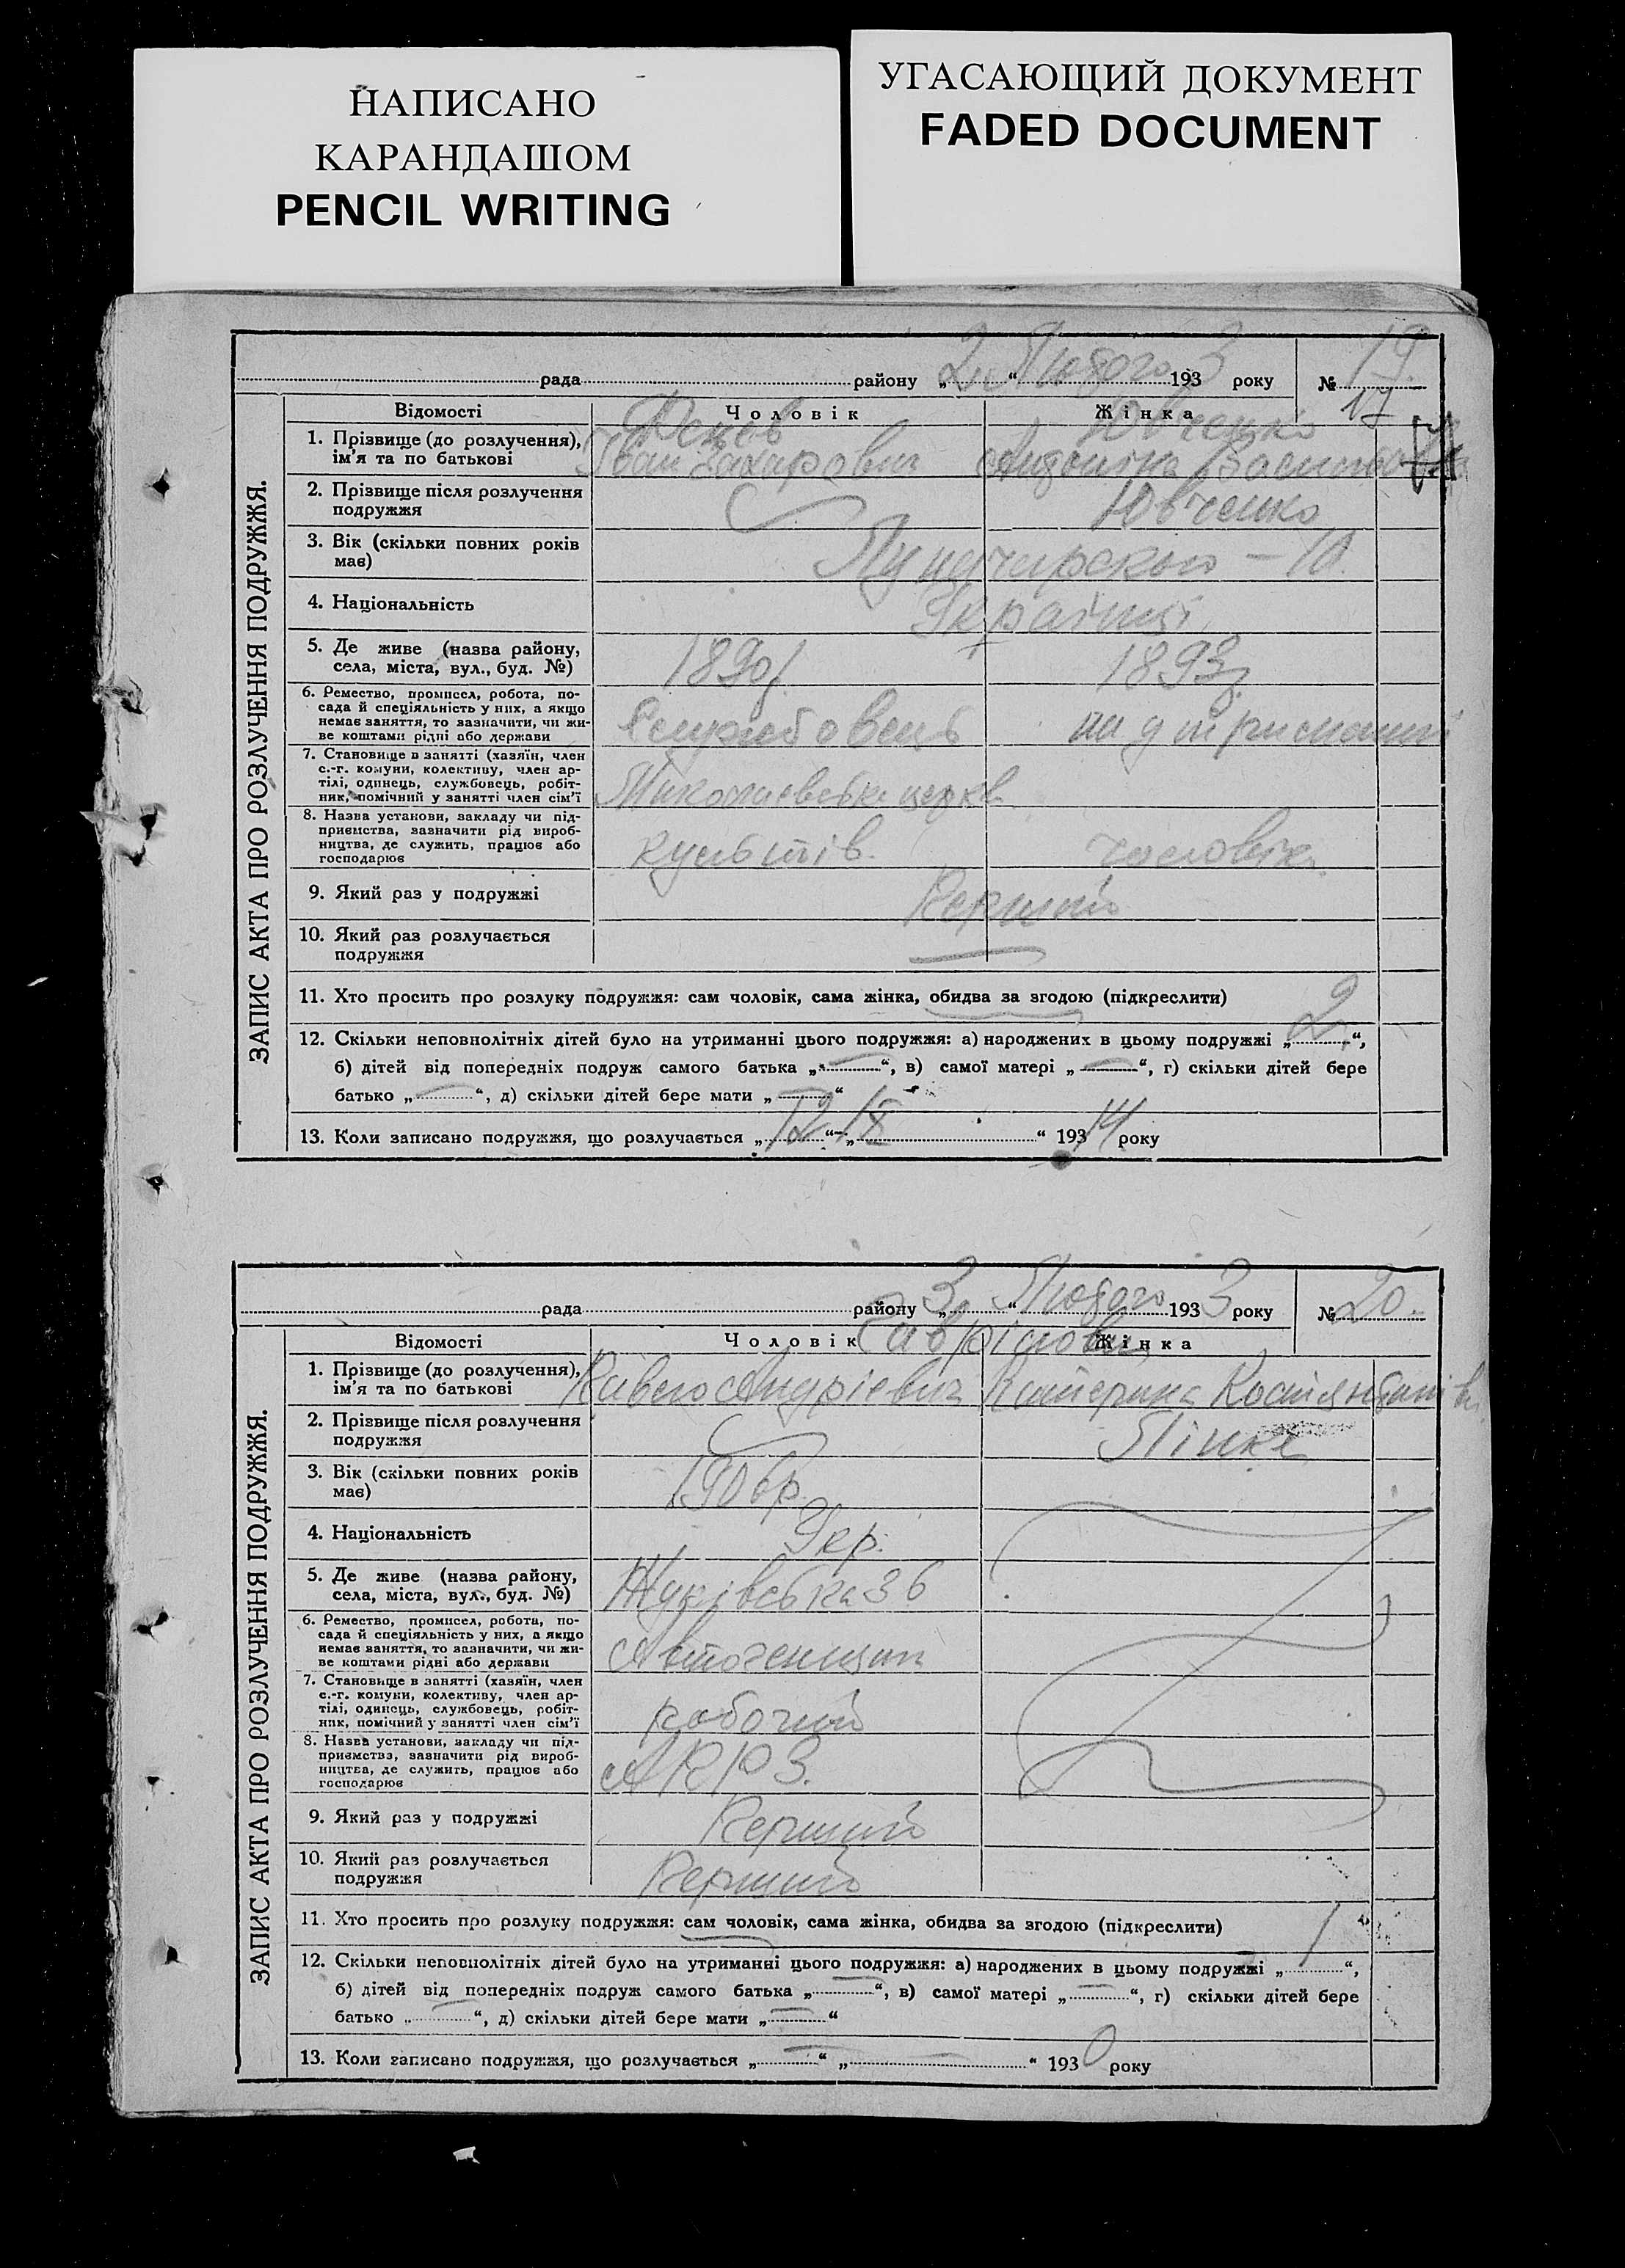 НАПИСАНО
КАРАНДАШОМ
PENCIL WRITING
УГАСАЮЩИЙ ДОКУМЕНТ
FADED DOCUMENT
рада району „2“ Лютого 1933 року № 19.
17
ЗАПИС АКТА ПРО РОЗЛУЧЕННЯ ПОДРУЖЖЯ.
Відомості Чоловік Жінка
Ювченко
1. Прізвище (до розлучення),
ім'я та по батькові
Іван Захарович
2. Прізвище після розлучення
подружжя
Ювченко
3. Вік (скільки повних років
має)
4. Національність
Українці
5. Де живе (назва району,
села, міста, вул., буд. №)
1890р. 1893р.
6. Ремество, промисел, робота, по-
сада й спеціяльність у них, а якщо
немає заняття, то зазначити, чи жи-
ве коштами рідні або держави
7. Становище в занятті (хазяїн, член
с.-г. комуни, колективу, член ар-
тілі, одинець, службовець, робіт-
ник, помічний у занятті член сім'ї
8. Назва установи, закладу чи під-
приємства, зазначити рід вироб-
ництва, де служить, працює або
господарює
чоловіка
9. Який раз у подружжі
Перший
10. Який раз розлучається
подружжя
11. Хто просить про розлуку подружжя: сам чоловік, сама жінка, обидва за згодою (підкреслити)
12. Скільки неповнолітніх дітей було на утриманні цього подружжя: а) народжених в цьому подружжі „2“,
б) дітей від попередніх подруж самого батька „—“, в) самої матері „—“, г) скільки дітей бере
батько „—“, д) скільки дітей бере мати „—“
13. Коли записано подружжя, що розлучається „12“ „IX“ 19314 року
рада району „3“ Лютого 1933 року № 20.
ЗАПИС АКТА ПРО РОЗЛУЧЕННЯ ПОДРУЖЖЯ.
Відомості Чоловік Жінка
1. Прізвище (до розлучення),
ім'я та по батькові
Павло Андрієвич Катерина Костянтинів
2. Прізвище після розлучення
подружжя
3. Вік (скільки повних років
має)
1906р.
4. Національність
Укр.
5. Де живе (назва району,
села, міста, вул., буд. №)
Жуківська 36
6. Ремество, промисел, робота, по-
сада й спеціяльність у них, а якщо
немає заняття, то зазначити, чи жи-
ве коштами рідні або держави
Автогенщик
7. Становище в занятті (хазяїн, член
с.-г. комуни, колективу, член ар-
тілі, одинець, службовець, робіт-
ник, помічний у занятті член сім'ї
робочий
8. Назва установи, закладу чи під-
приємства, зазначити рід вироб-
ництва, де служить, працює або
господарює
9. Який раз у подружжі
Перший
10. Який раз розлучається
подружжя
Перший
11. Хто просить про розлуку подружжя: сам чоловік, сама жінка, обидва за згодою (підкреслити)
12. Скільки неповнолітніх дітей було на утриманні цього подружжя: а) народжених в цьому подружжі „1“,
б) дітей від попередніх подруж самого батька „—“, в) самої матері „—“, г) скільки дітей бере
батько „—“, д) скільки дітей бере мати „—“
13. Коли записано подружжя, що розлучається „—“ „—“ 1930 року